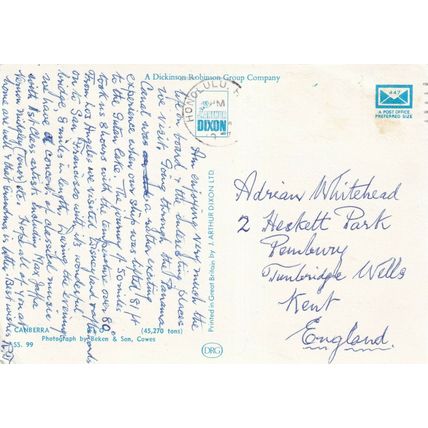 A Dickinson Robinson Group Company
HONOLULU, H
PM
ARTHUR
DIXON
447
A POST OFFICE
PREFERRED SIZE
Am enjoying very much the
life on board & the interesting places
we visit. Going through the Panama
Canal was a rather exciting
experience when our ship was lifted 85 ft
to the Gatun Lake. The journey of 50 miles
took us 8 hours with the temperature over 80°
From Los Angeles we visited Disneyland & afterwards
on to San Francisco with its wonderful
bridge, 8 miles in length. During the evening
we have a concert of classical music
with 1st class artists including Max Jaffa
at home are well & that Grandma is better. Best wishes
Adrian Whitehead
2 Heskett Park
Pembury
Tunbridge Wells
Kent
England.
Printed in Great Britain by J. ARTHUR DIXON LTD
DRG
CANBERRA
P O
(45,270 tons)
Photograph by Beken & Son, Cowes
SS. 99